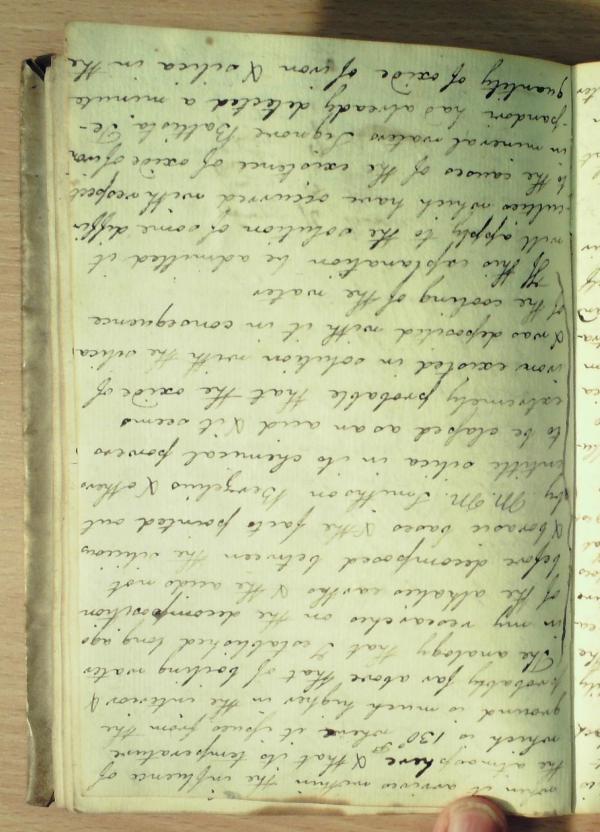 when it arrives within the influence of
the atmosphere & that its temperature
which is 130° where it issues from the
ground is much higher in the interior &
probably far above that of boiling water
The analogy that I established long ago
in my researches on the decomposition
of the alkalies earths & the acids not
before decomposed between the silicious
& boracic bases & the facts pointed out
by M. M. Smithson Berzelius & others
entitle silica in its chemical powers
to be classed as an acid & it seems
extremely probable that the oxide of
iron existed in solution with the silica
& was deposited with it in consequence
of the cooling of the water
If this explanation be admitted it
will apply to the solution of some diffi-
-culties which have occurred with respect
to the causes of the existence of oxide of iron
in mineral waters Signore Battista Te-
-pandori has already detected a minute
quantity of oxide of iron & silica in the